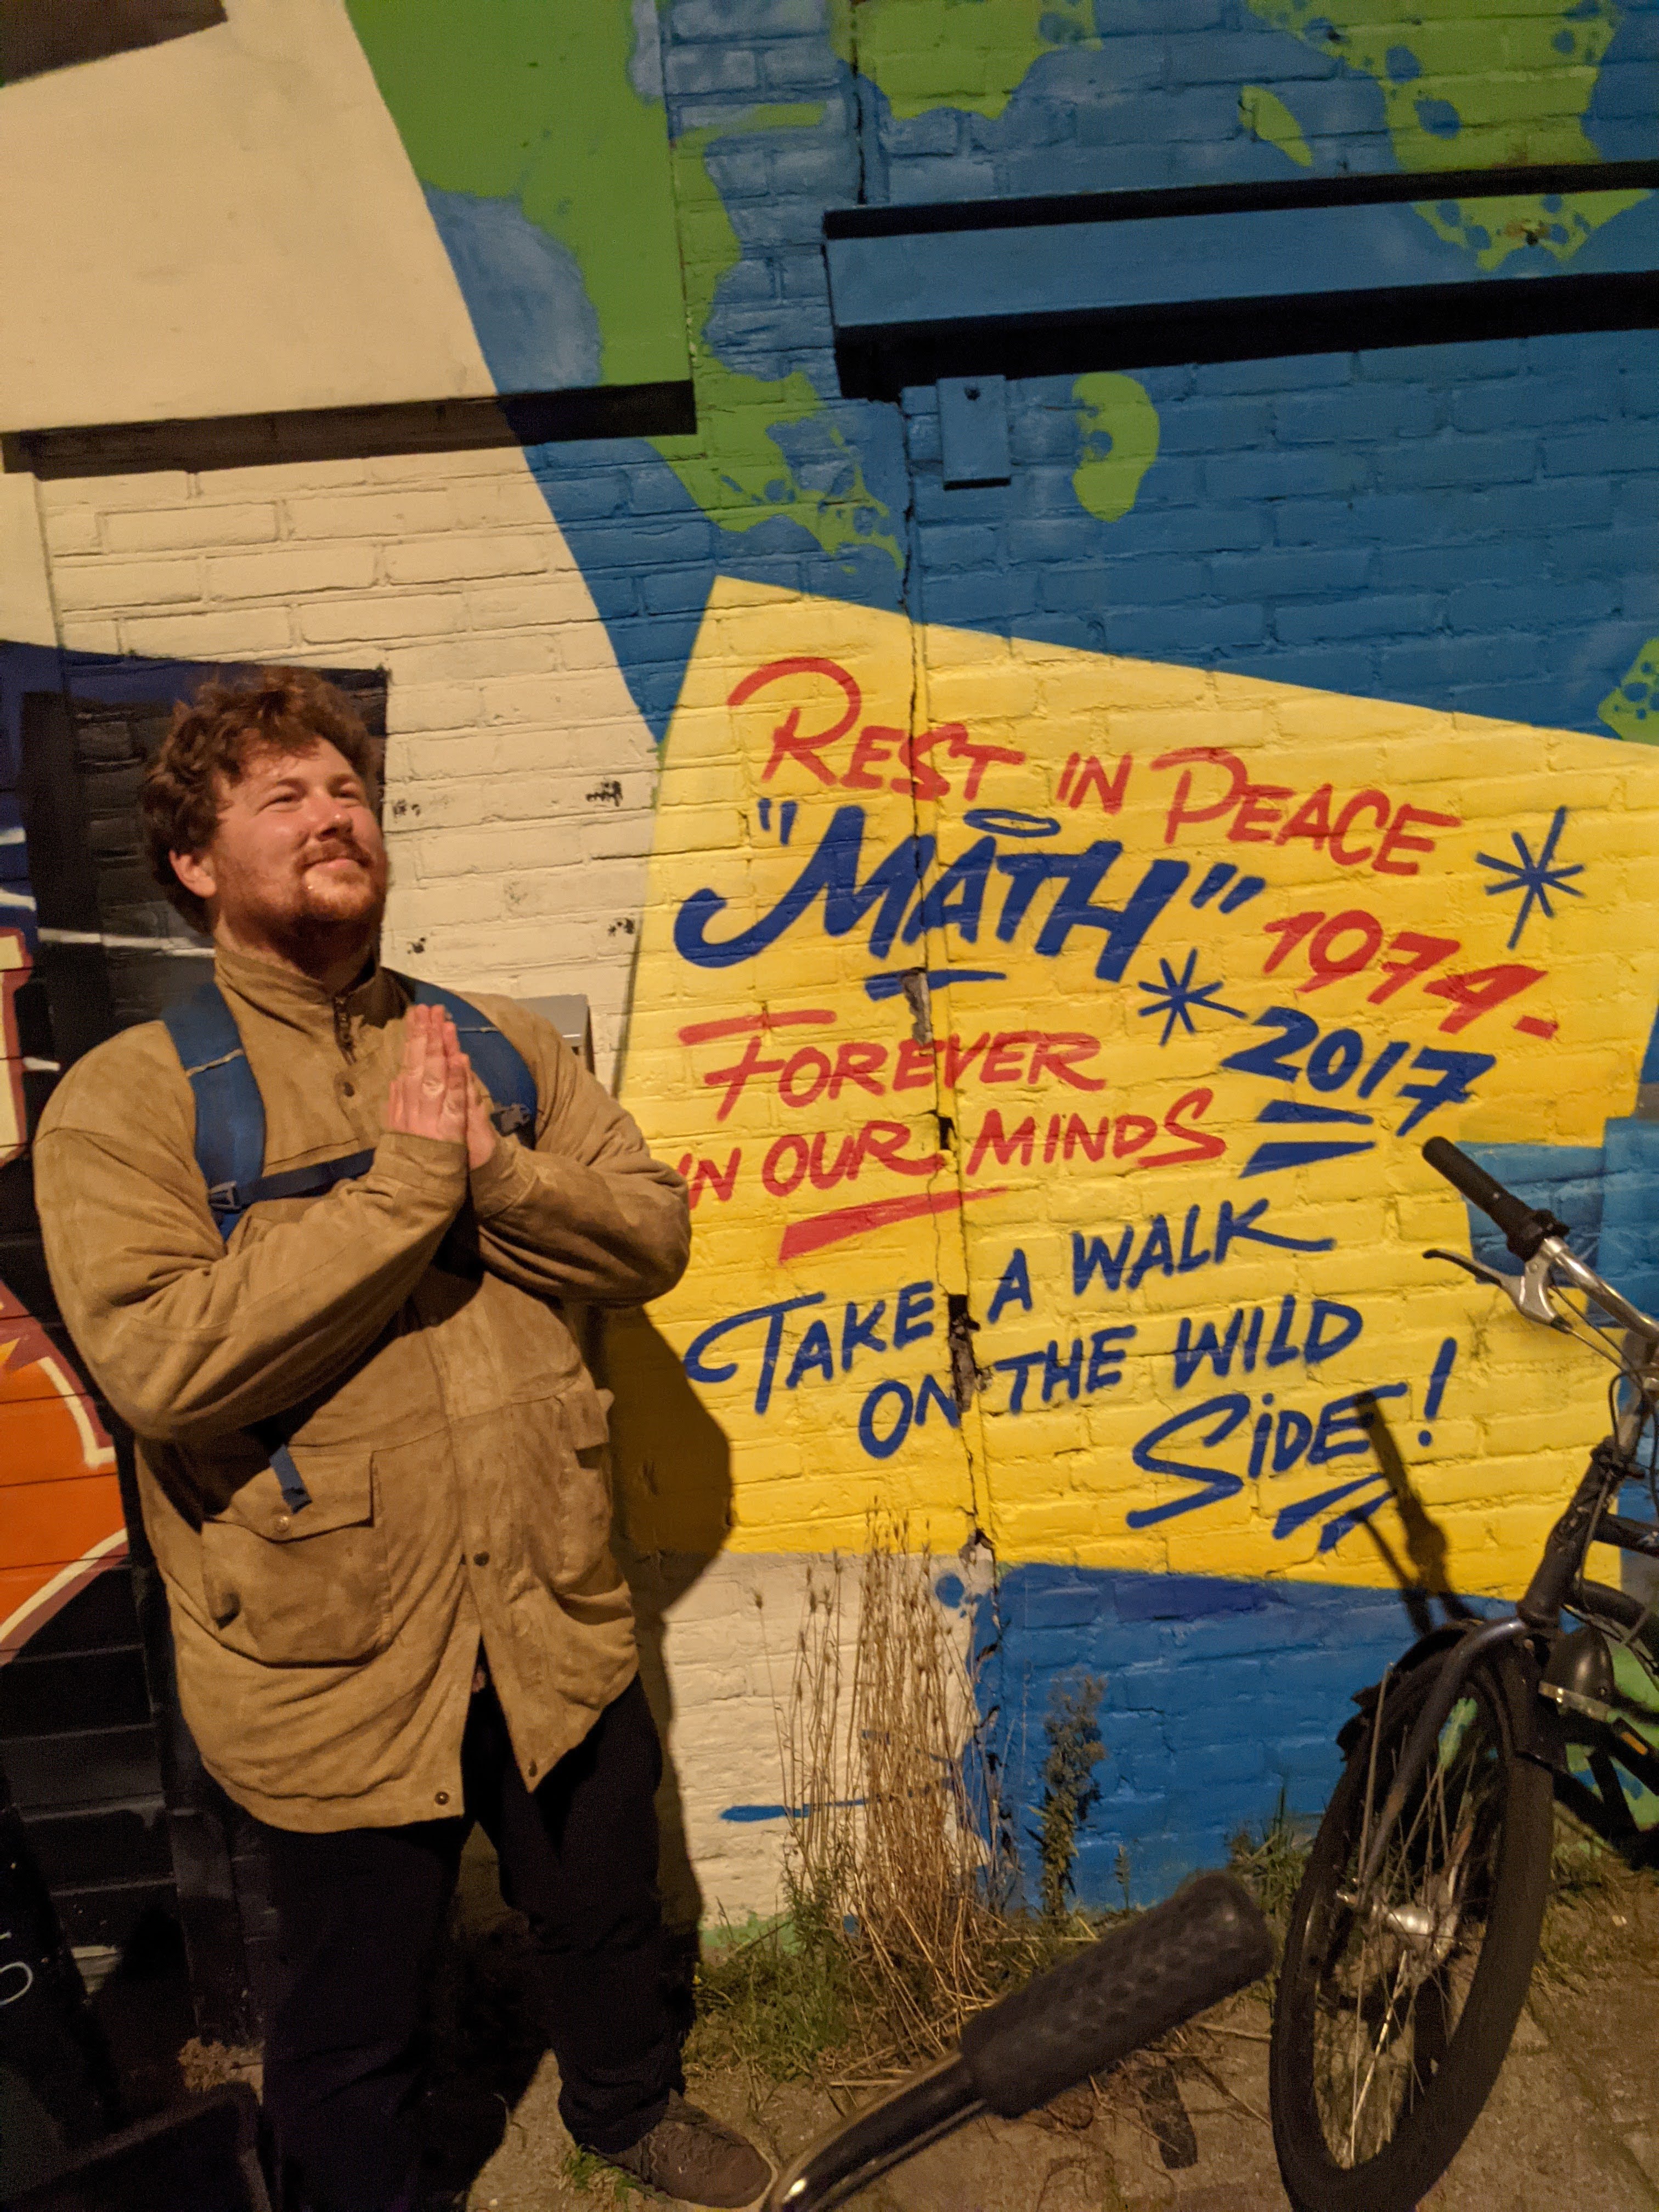 REST IN PEACE
"MATH" 1974-
2017
FOREVER
IN OUR MINDS
TAKE A WALK
ON THE WILD
SIDE!